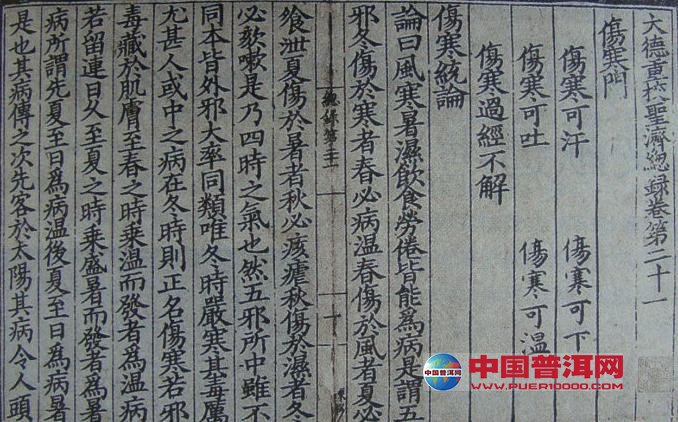 大德重校聖濟總録卷第二十一
傷寒門
傷寒可汗 傷寒可下
傷寒可吐 傷寒可溫
傷寒過經不解
傷寒統論
論曰風寒暑濕飲食勞倦皆能為病是謂五
邪冬傷於寒者春必病温春傷於風者夏必
飱泄夏傷於暑者秋必痎瘧秋傷於濕者冬
必欬嗽是乃四時之氣也然五邪所中雖不
同本皆外邪大率同類唯冬時嚴寒其毒厲
尤甚人或中之病在冬時則正名傷寒若邪
毒藏於肌膚至春之時乘温而發者為温病
若留連日久至夏之時乘盛暑而發者為暑
病所謂先夏至日為病温後夏至日為病暑
是也其病傳之次先客於太陽其病令人頭
中国普洱网
中国普洱网
WWW.PUER10000.COM